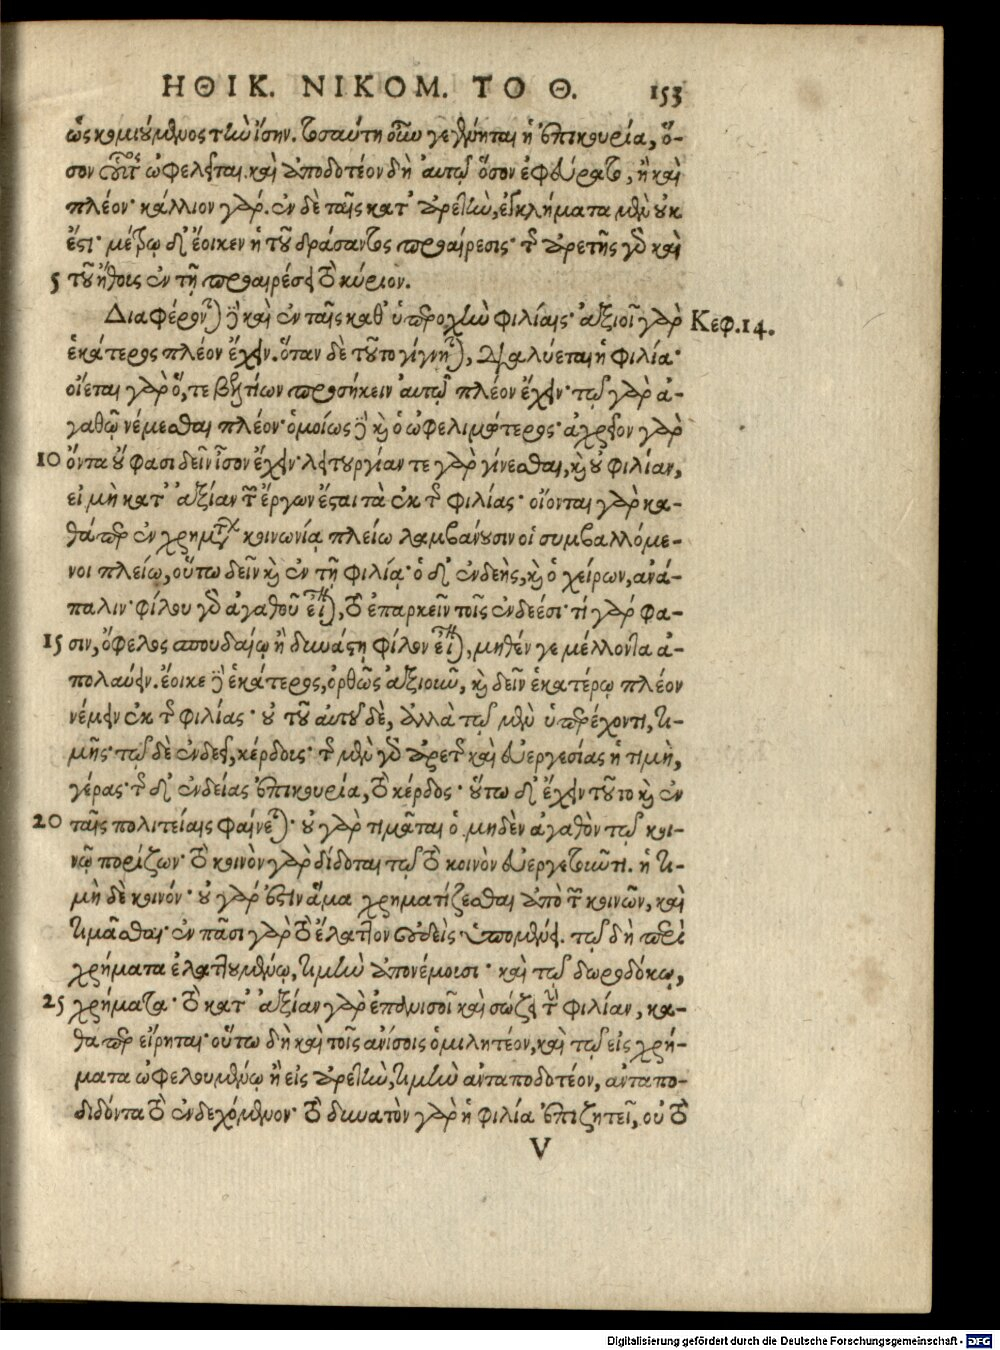 ΗΘΙΚ. ΝΙΚΟΜ. ΤΟ Θ. 153
ὡς κομιούμενος τὴν ἴσην. τοσαύτη οὖν γεγένηται ἡ ἐπικουρία, ὅ-
σον οὗτος ὠφελεῖται. καὶ ἀποδοτέον δὴ αὐτῷ ὅσον ἐφεύρατο, ἢ καὶ
πλέον· κάλλιον γάρ. ἐν δὲ ταῖς κατ' ἀρετὴν, ἐγκλήματα μὲν οὐκ
ἔστι· μέτρῳ δ' ἔοικεν ἡ τοῦ δράσαντος προαίρεσις· τῆς ἀρετῆς γὸ καὶ
5 τοῦ ἤθους ἐν τῇ προαιρέσει τὸ κύριον.
Διαφέρονται δὲ καὶ ἐν ταῖς καθ' ὑπεροχὴν φιλίαις· ἀξιοῖ γὰρ Κεφ. 14.
ἑκάτερος πλέον ἔχειν. ὅταν δὲ τοῦτο γίγνηται, διαλύεται ἡ φιλία·
οἴεται γὰρ ὅ, τε βελτίων προσήκειν αὐτῷ πλέον ἔχειν· τῷ γὰρ ἀ-
γαθῷ νέμεσθαι πλέον· ὁμοίως δὲ καὶ ὁ ὠφελιμώτερος· ἀχρεῖον γὰρ
10 ὄντα οὔ φασι δεῖν ἴσον ἔχειν· λειτουργίαν τε γὰρ γίνεσθαι, καὶ οὐ φιλίαν,
εἰ μὴ κατ' ἀξίαν τῶν ἔργων ἔσται τὰ ἐκ τῆς φιλίας· οἴονται γὰρ κα-
θάπερ ἐν χρημάτων κοινωνίᾳ πλείω λαμβάνουσιν οἱ συμβαλλόμε-
νοι πλείω, οὕτω δεῖν καὶ ἐν τῇ φιλίᾳ· ὁ δ' ἐνδεὴς, καὶ ὁ χείρων, ἀνά-
παλιν· φίλου γὸ ἀγαθοῦ εἶναι, τὸ ἐπαρκεῖν τοῖς ἐνδεέσι· τί γάρ φα-
15 σιν, ὄφελος σπουδαίῳ ἢ δυνάστῃ φίλον εἶναι, μηθέν γε μέλλοντα ἀ-
πολαύειν. ἔοικε δὲ ἑκάτερος, ὀρθῶς ἀξιοῦν, καὶ δεῖν ἑκατέρῳ πλέον
νέμειν ἐκ τῆς φιλίας· οὐ τοῦ αὐτοῦ δὲ, ἀλλὰ τῷ μὲν ὑπερέχοντι, τι-
μῆς· τῷ δὲ ἐνδεεῖ, κέρδους· τῆς μὲν γὸ ἀρετῆς καὶ εὐεργεσίας ἡ τιμὴ,
γέρας· τῆς δ' ἐνδείας ἐπικουρία, τὸ κέρδος· οὕτω δ' ἔχειν τοῦτο καὶ ἐν
20 ταῖς πολιτείαις φαίνεται· οὐ γὰρ τιμᾶται ὁ μηδὲν ἀγαθὸν τῷ κοι-
νῷ πορίζων· τὸ κοινὸν γὰρ δίδοται τῷ τὸ κοινὸν εὐεργετοῦντι. ἡ τι-
μὴ δὲ κοινόν· οὐ γάρ ἐστιν ἅμα χρηματίζεσθαι ἀπὸ τῶν κοινῶν, καὶ
τιμᾶσθαι· ἐν πᾶσι γὰρ τὸ ἔλαττον οὐδεὶς ὑπομένει. τῷ δὴ περὶ
χρήματα ἐλαττουμένῳ, τιμὴν ἀπονέμουσι· καὶ τῷ δωροδόκῳ,
25 χρήματα· τὸ κατ' ἀξίαν γὰρ ἐπανισοῖ καὶ σώζει τὴν φιλίαν, κα-
θάπερ εἴρηται· οὕτω δὴ καὶ τοῖς ἀνίσοις ὁμιλητέον, καὶ τῷ εἰς χρή-
ματα ὠφελουμένῳ ἢ εἰς ἀρετὴν, τιμὴν ἀνταποδοτέον, ἀνταπο-
διδόντα τὸ ἐνδεχόμενον· τὸ δυνατὸν γὰρ ἡ φιλία ἐπιζητεῖ, οὐ τὸ
V
Digitalisierung gefördert durch die Deutsche Forschungsgemeinschaft - DFG